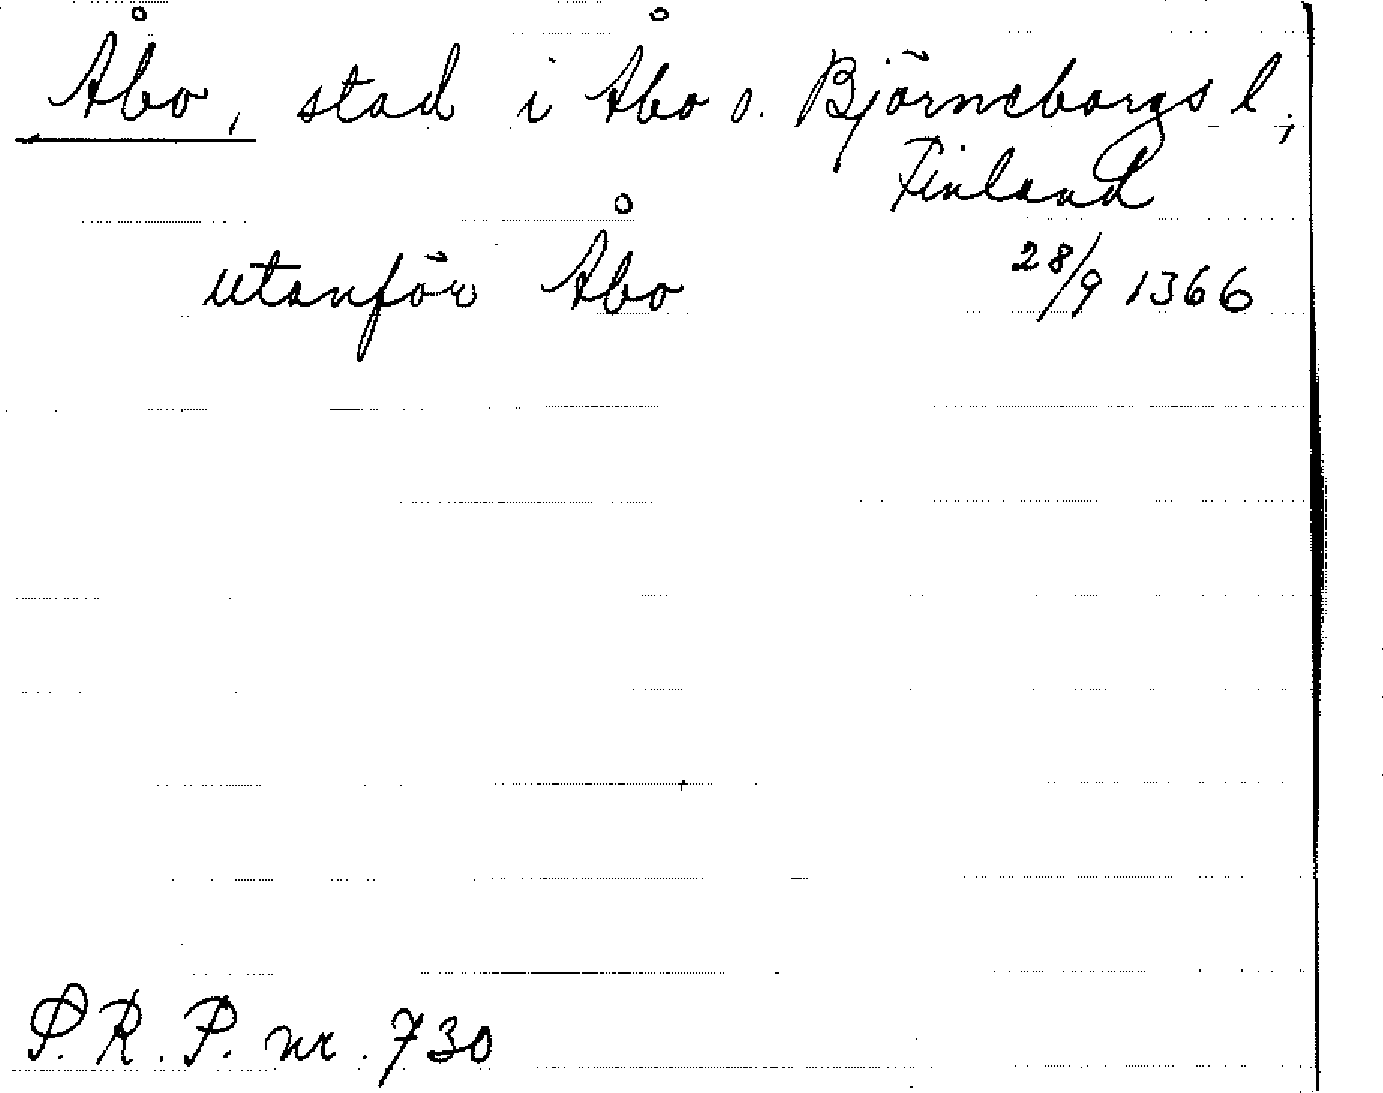 Åbo, stad i Åbo o. Björneborgs l,
Finland
utanför Åbo 28/9 1366
S.R.P. nr. 730